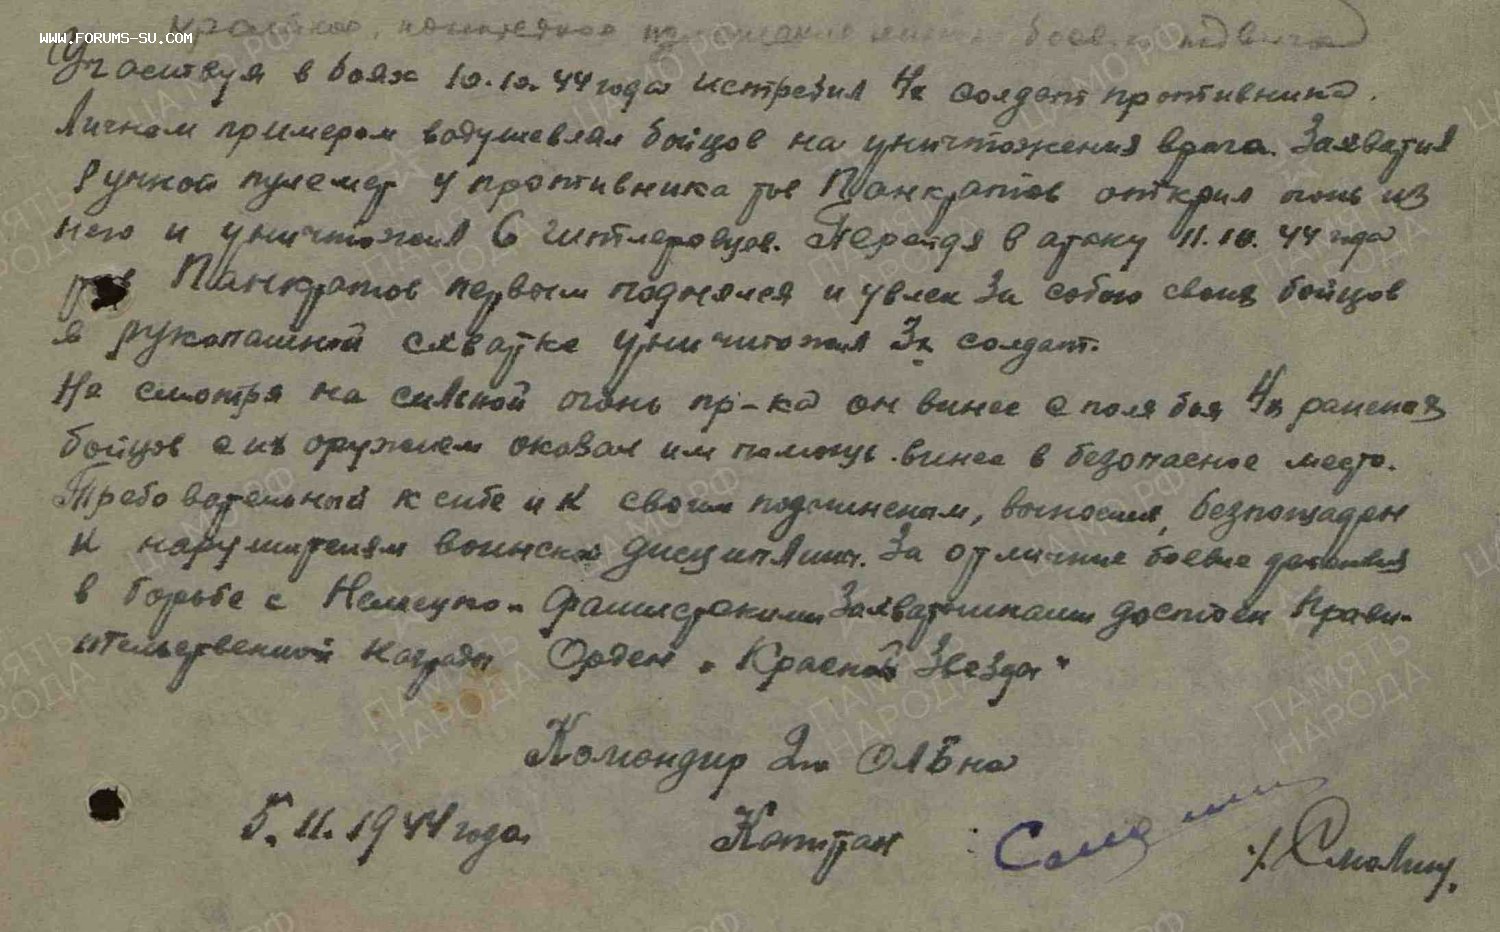 WWW.FORUMS-SU.COM
Участвуя в боях 10.10.44 года истребил 4х солдат противника.
Личном примером водушевлял бойцов на уничтожения врага. Захватил
Ручной пулемет у противника тов Панкратов открил огонь из
него и уничтожил 6 гитлеровцов. Перейдя в атоку 11.10.44 года
тов Панкратов первым поднялся и увлек за собою своих бойцов
в рукопашной схватке уничтожил 3х солдат.
На смотря на сильной огонь пр-ка он винес с поля боя 4х раненых
бойцов с их оружием оказал им помощь винес в безопасное место.
Требовательный к себе и к своим подчиненам, вынослив, безпощаден
к нарушителям воинской дисциплины. За отличные боевые действия
в борьбе с Немецко-фашистскими Захватчиками достоен Прави-
тельственной награды Орден „Красной Звезда"
Командир 2го ОЛБна
5.11.1944 года. Капитан : /Смолин/.
ЦАМО РФ
ПАМЯТЬ
НАРОДА